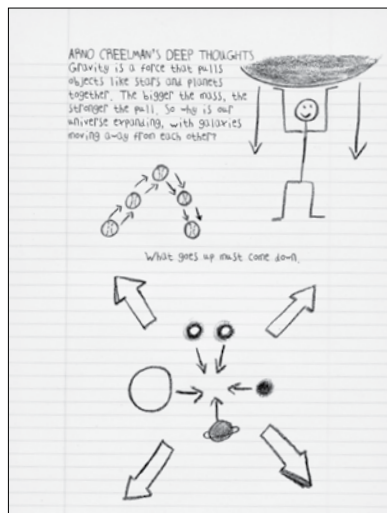 ARNO CREELMAN'S DEEP THOUGHTS
Gravity is a force that pulls
objects like stars and planets
together. The bigger the mass, the
stronger the pull. So why is our
universe expanding, with galaxies
moving away from each other?
What goes up must come down.